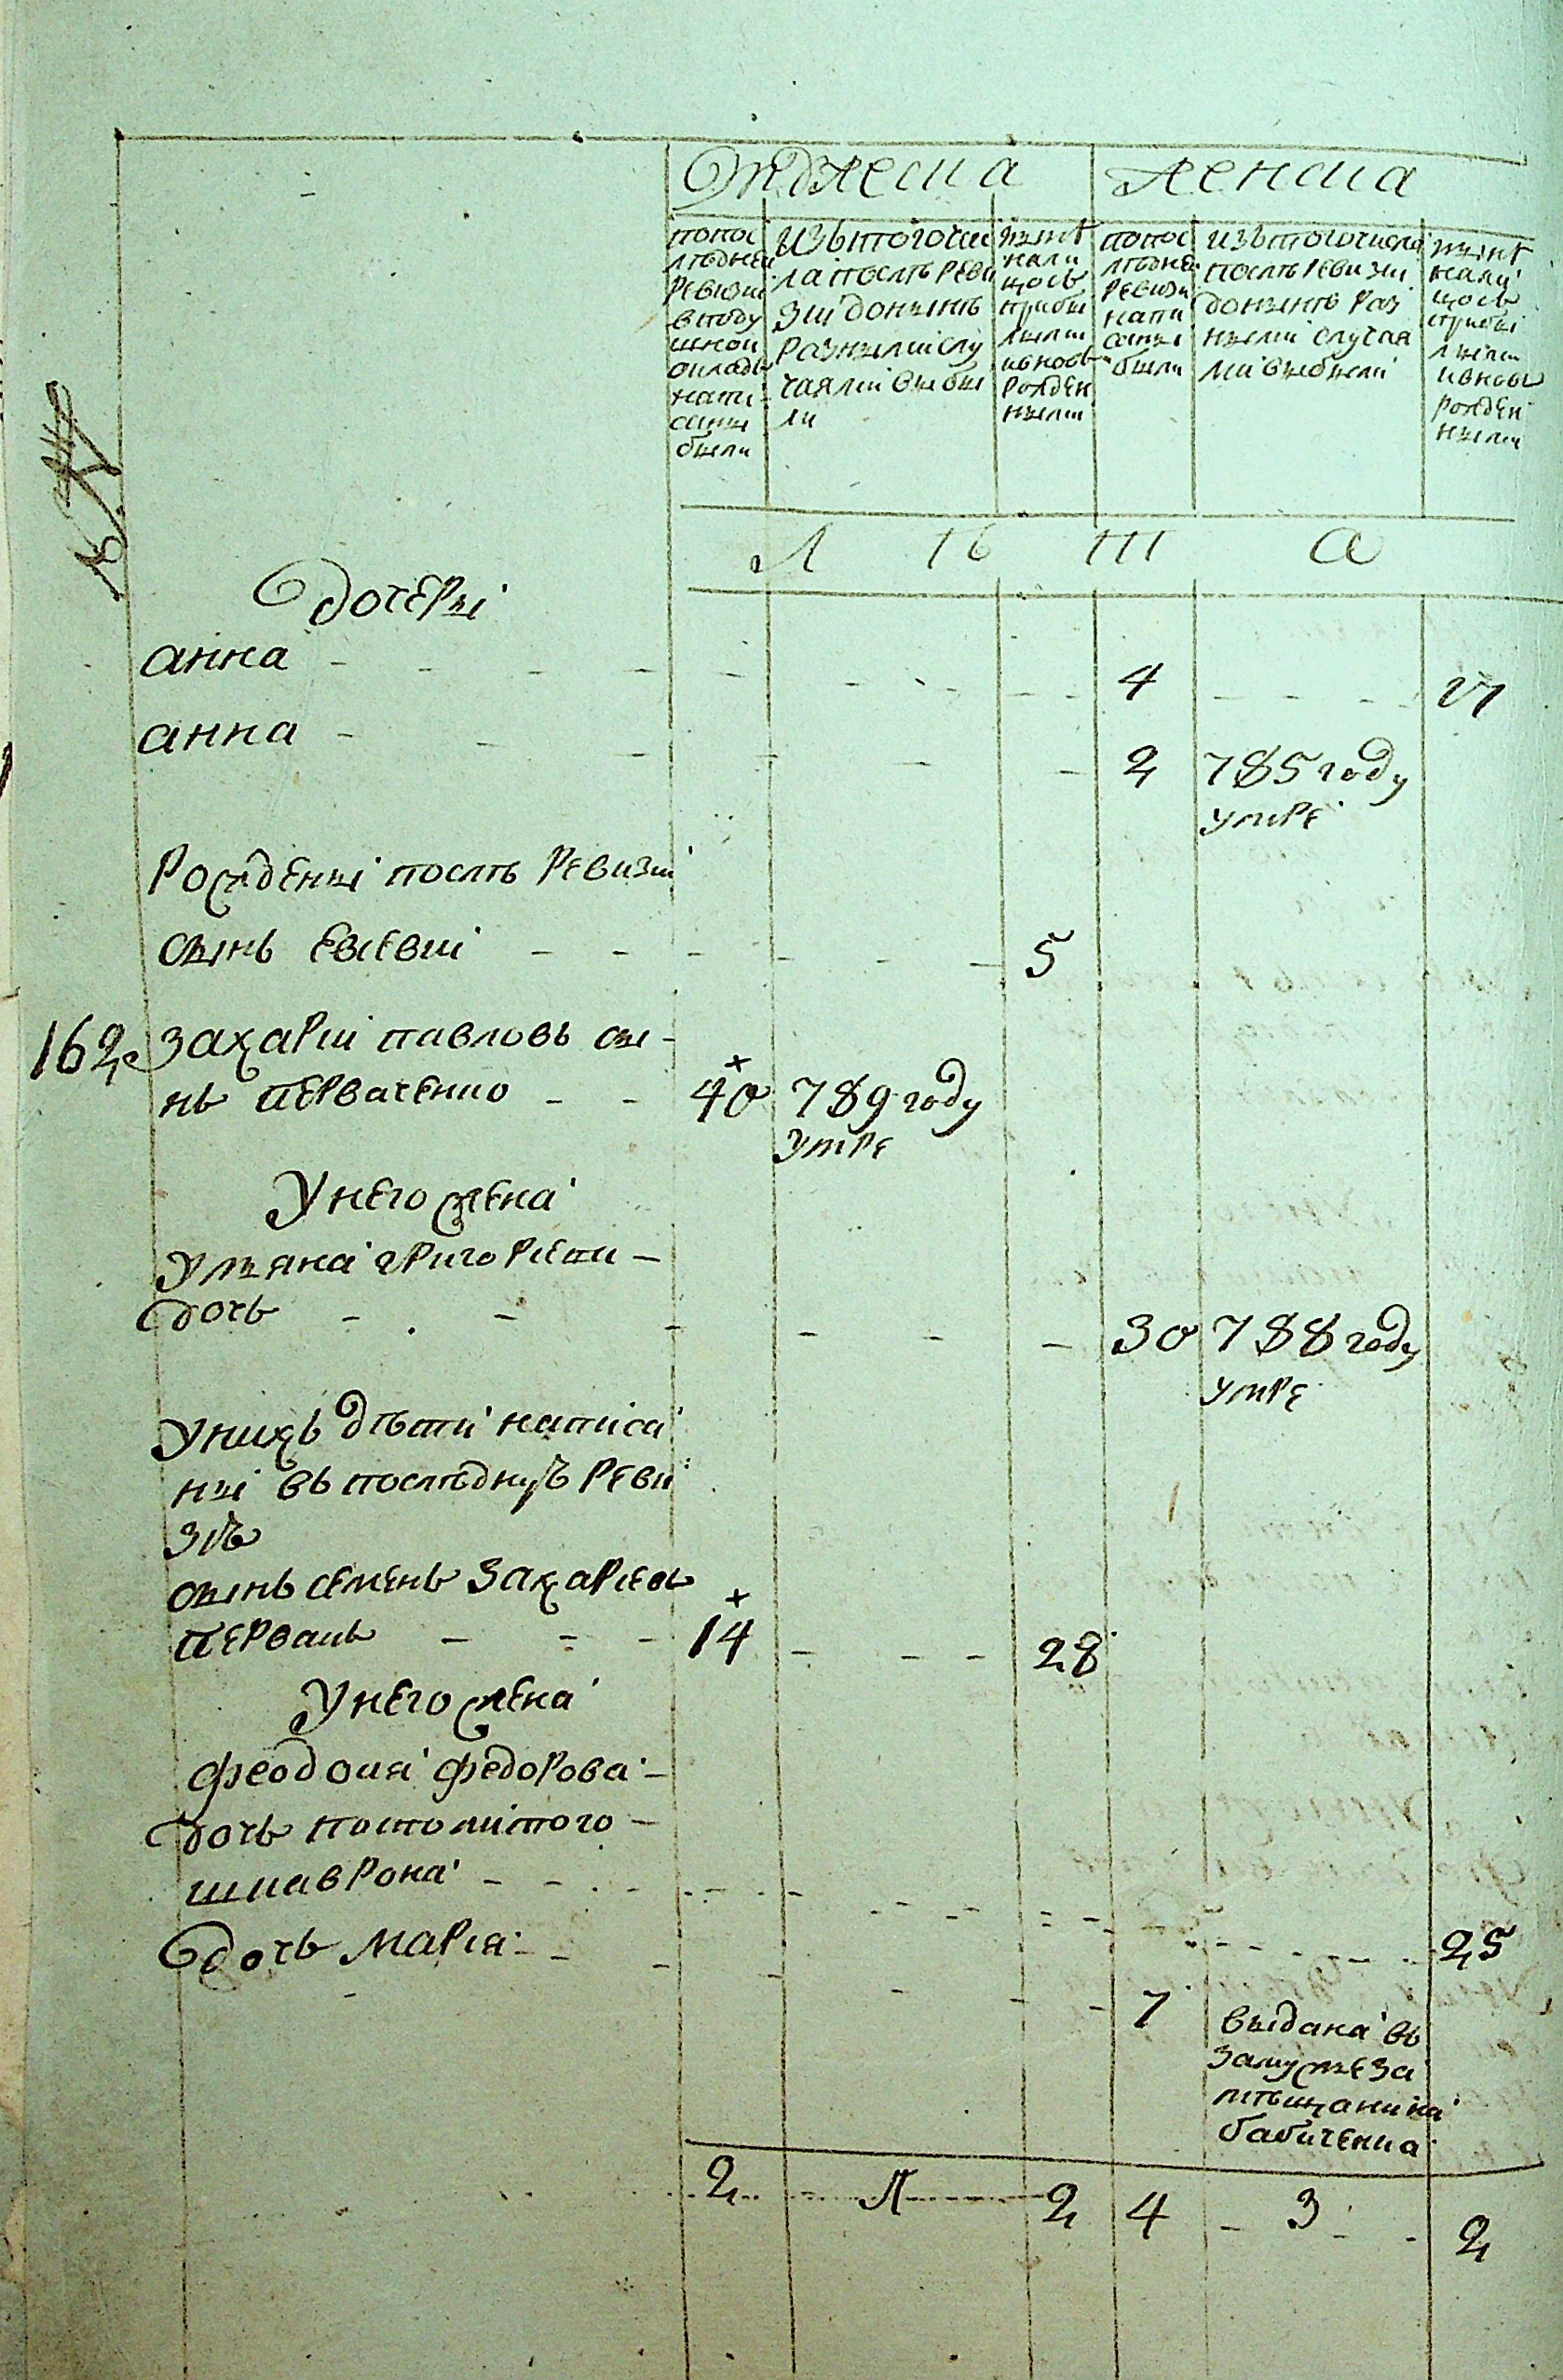 Мужеска Женска
попос
лѣдней
ревизии
вподу
шной
окладъ
напи
саны
были
изътогочис
ла послѣ реви
зии донынѣ
разными слу
чаями выбы
ли
нынѣ
нали
цось
прибы
лыми
ивновь
рожден
ными
попос
лѣдней
ревизи
напи
саны
были
изътогочисла
послѣ ревизии
донынѣ раз
ными случая
ми выбыли
нынѣ
нали
цось
прибы
лыми
ивновь
рожден
ными
Л ѣ т а
дочеры
анна 4 17
анна 2 785 году
умре
Рожденны послѣ ревизии
сынъ Евсевии 5
162 Захарии павловъ сы-
нъ перваченко 40 789 году
умре
У него жена
Ульяна григориева
дочь 30 788 году
умре
У нихъ дѣти написа
ны въ последнюю реви
зию
сынъ семенъ Захариевъ
первакъ 14 28
У него жена
феодосия федорова
дочь посполитого
шкаврона 25
дочь Мария 7 выдана въ
замужеза
мѣщанина
бабиченка
2 1 2 4 3 2